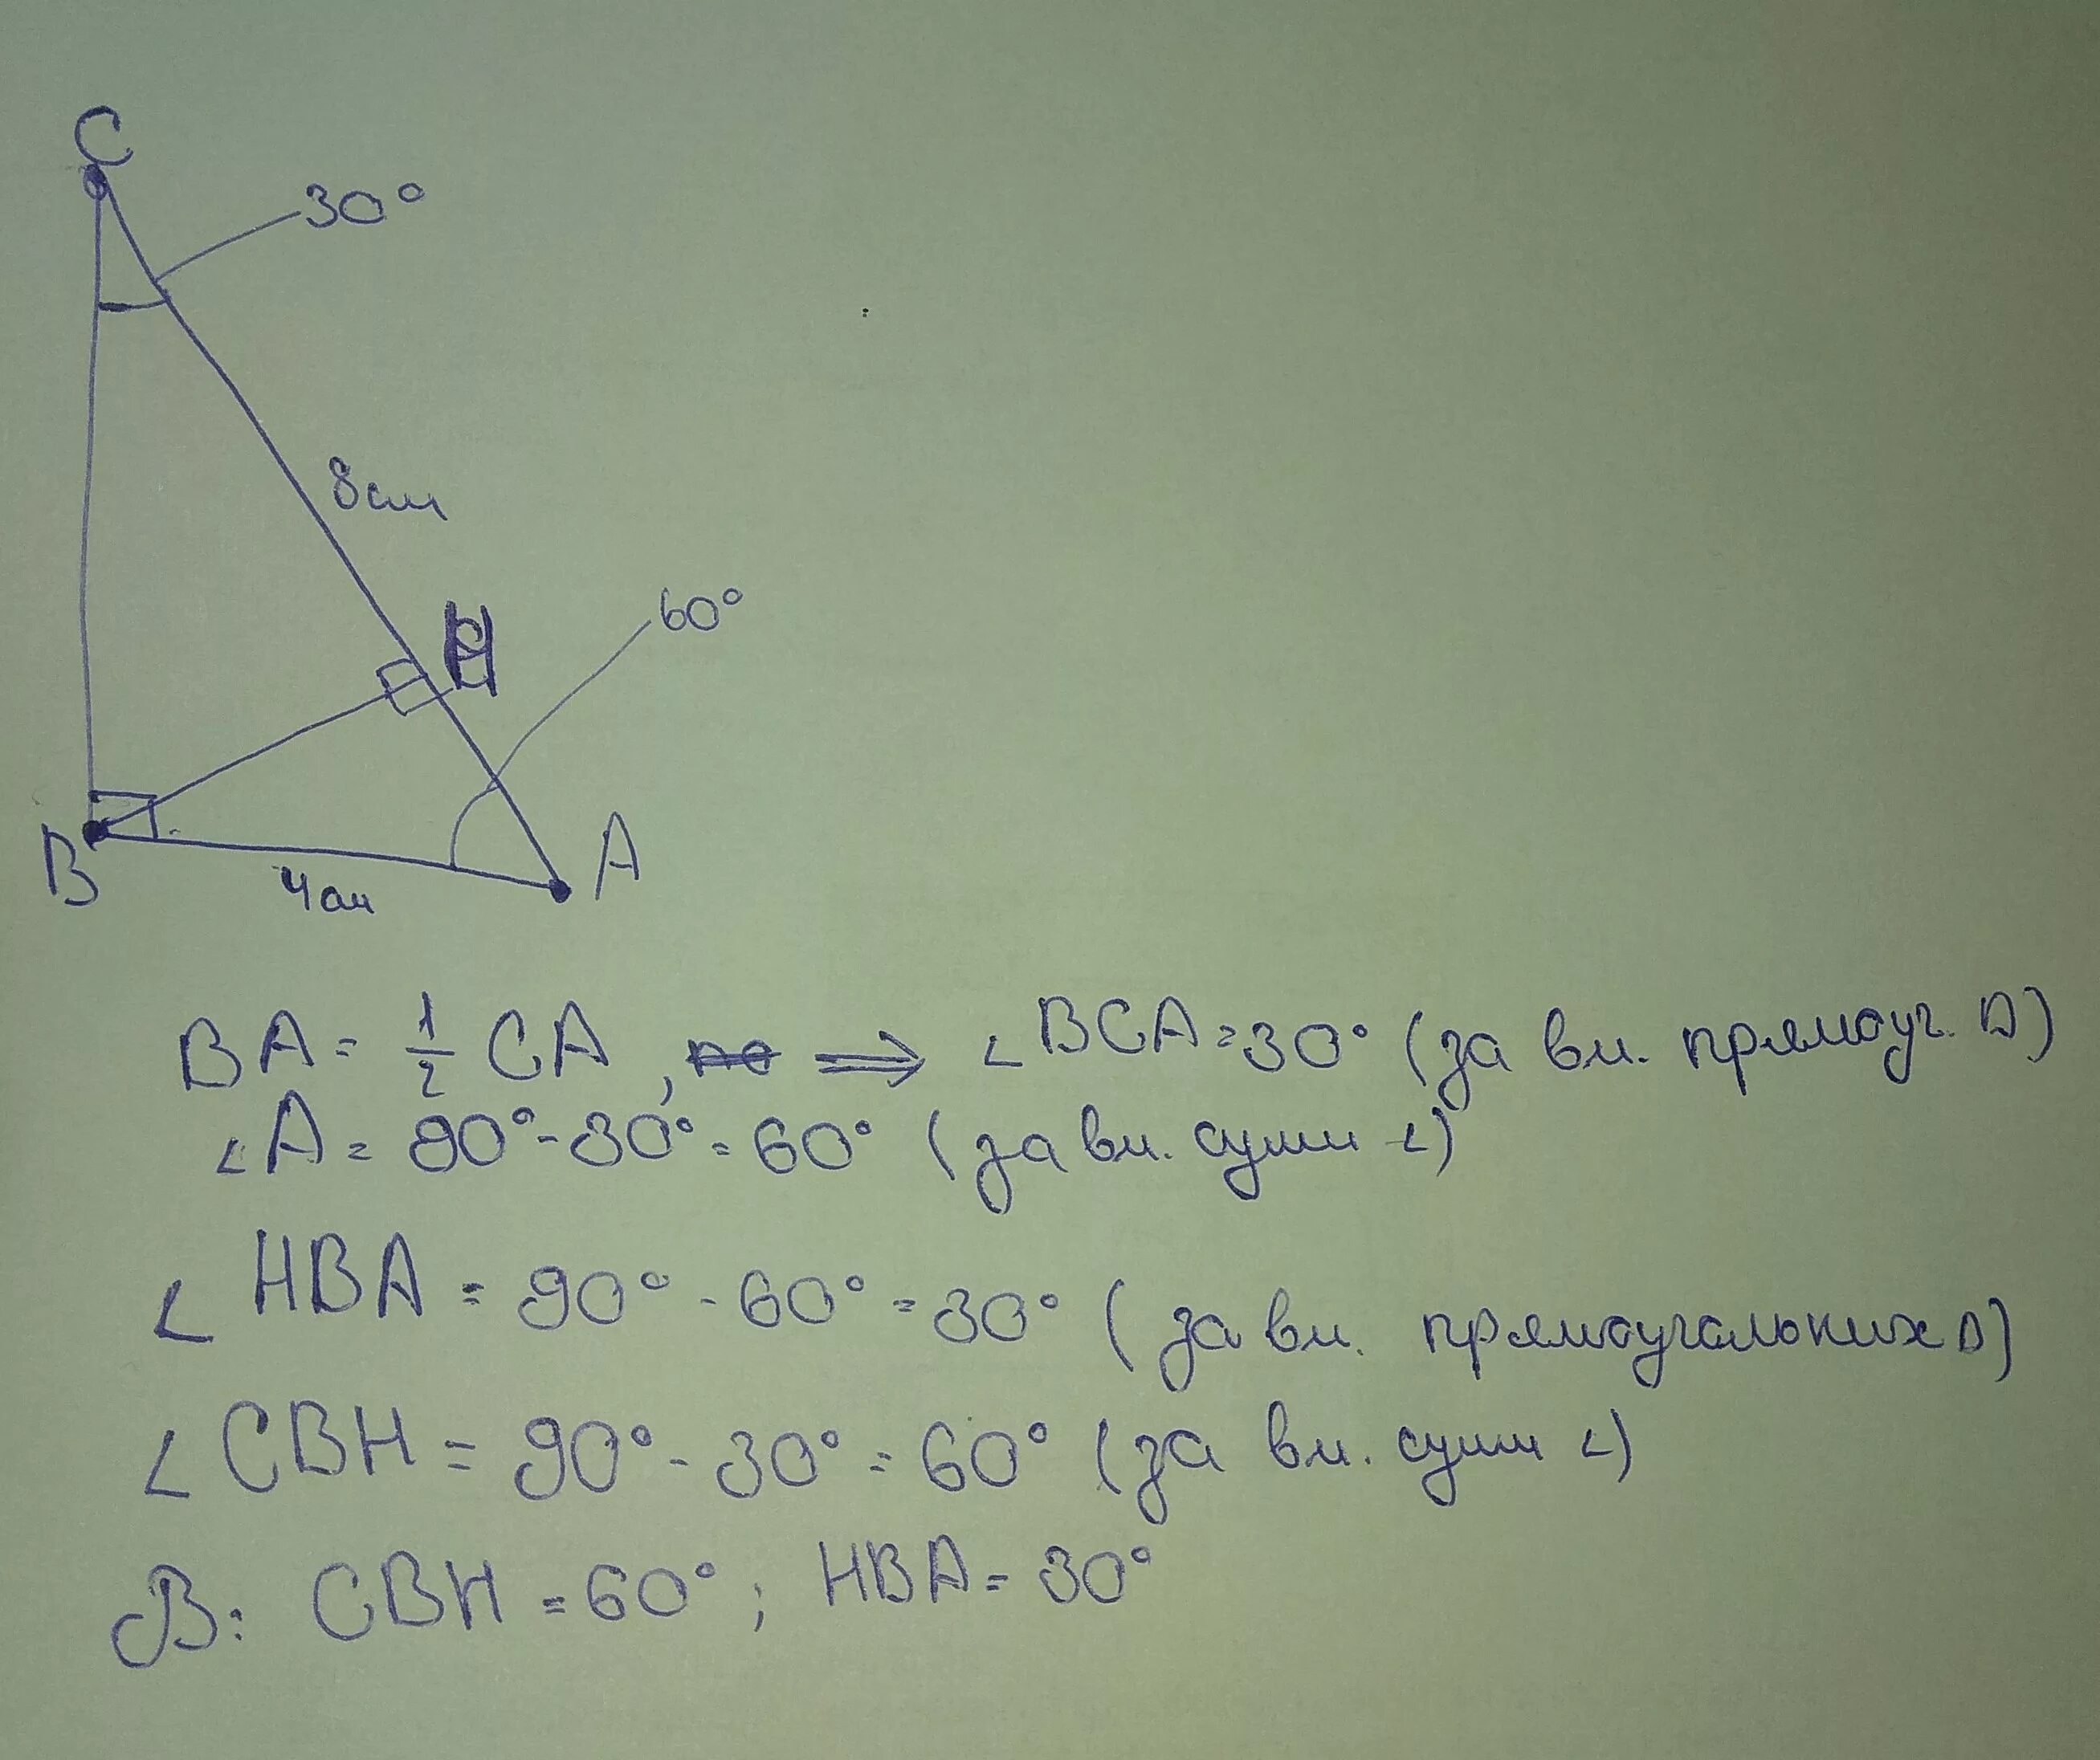 C
30°
8см
60°
H
B
A
4см
BA = 1/2 CA, ⟹ ∠BCA = 30° (за вл. прямоуг. Δ)
∠A = 90° - 30° = 60° (за вл. суми ∠)
∠HBA = 90° - 60° = 30° (за вл. прямоугольних Δ)
∠CBH = 90° - 30° = 60° (за вл. суми ∠)
В: CBH = 60°; HBA = 30°